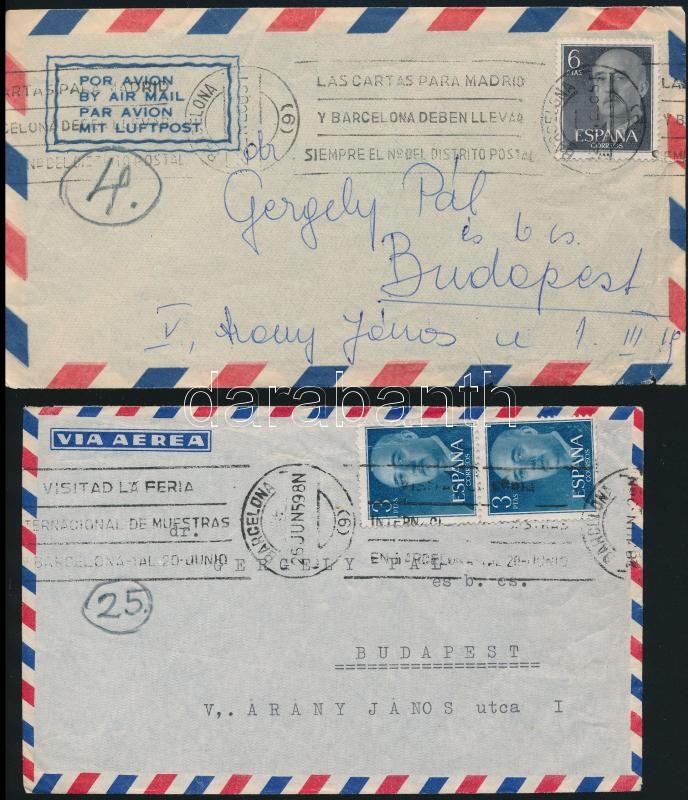 POR AVION
BY AIR MAIL
PAR AVION
MIT LUFTPOST
BARCELONA
(9)
LAS CARTAS PARA MADRID
Y BARCELONA DEBEN LLEVAR
SIEMPRE EL Nº DEL DISTRITO POSTAL
6
PTAS
ESPAÑA
CORREOS
4.
dr
Gergely Pál
és b cs.
Budapest
V, Arany János u 1. III 19
darabanth
VIA AEREA
VISITAD LA FERIA
INTERNACIONAL DE MUESTRAS
BARCELONA-1 AL 20-JUNIO
BARCELONA
26 JUN 59 8N
(9)
3 PTAS
ESPAÑA
CORREOS
3 PTAS
ESPAÑA
CORREOS
EN BARCELONA-1 AL 20-JUNIO
BARCELONA
dr.
GERGELY PAL
es b. cs.
25.
BUDAPEST
V,. ARANY JÁNOS utca I